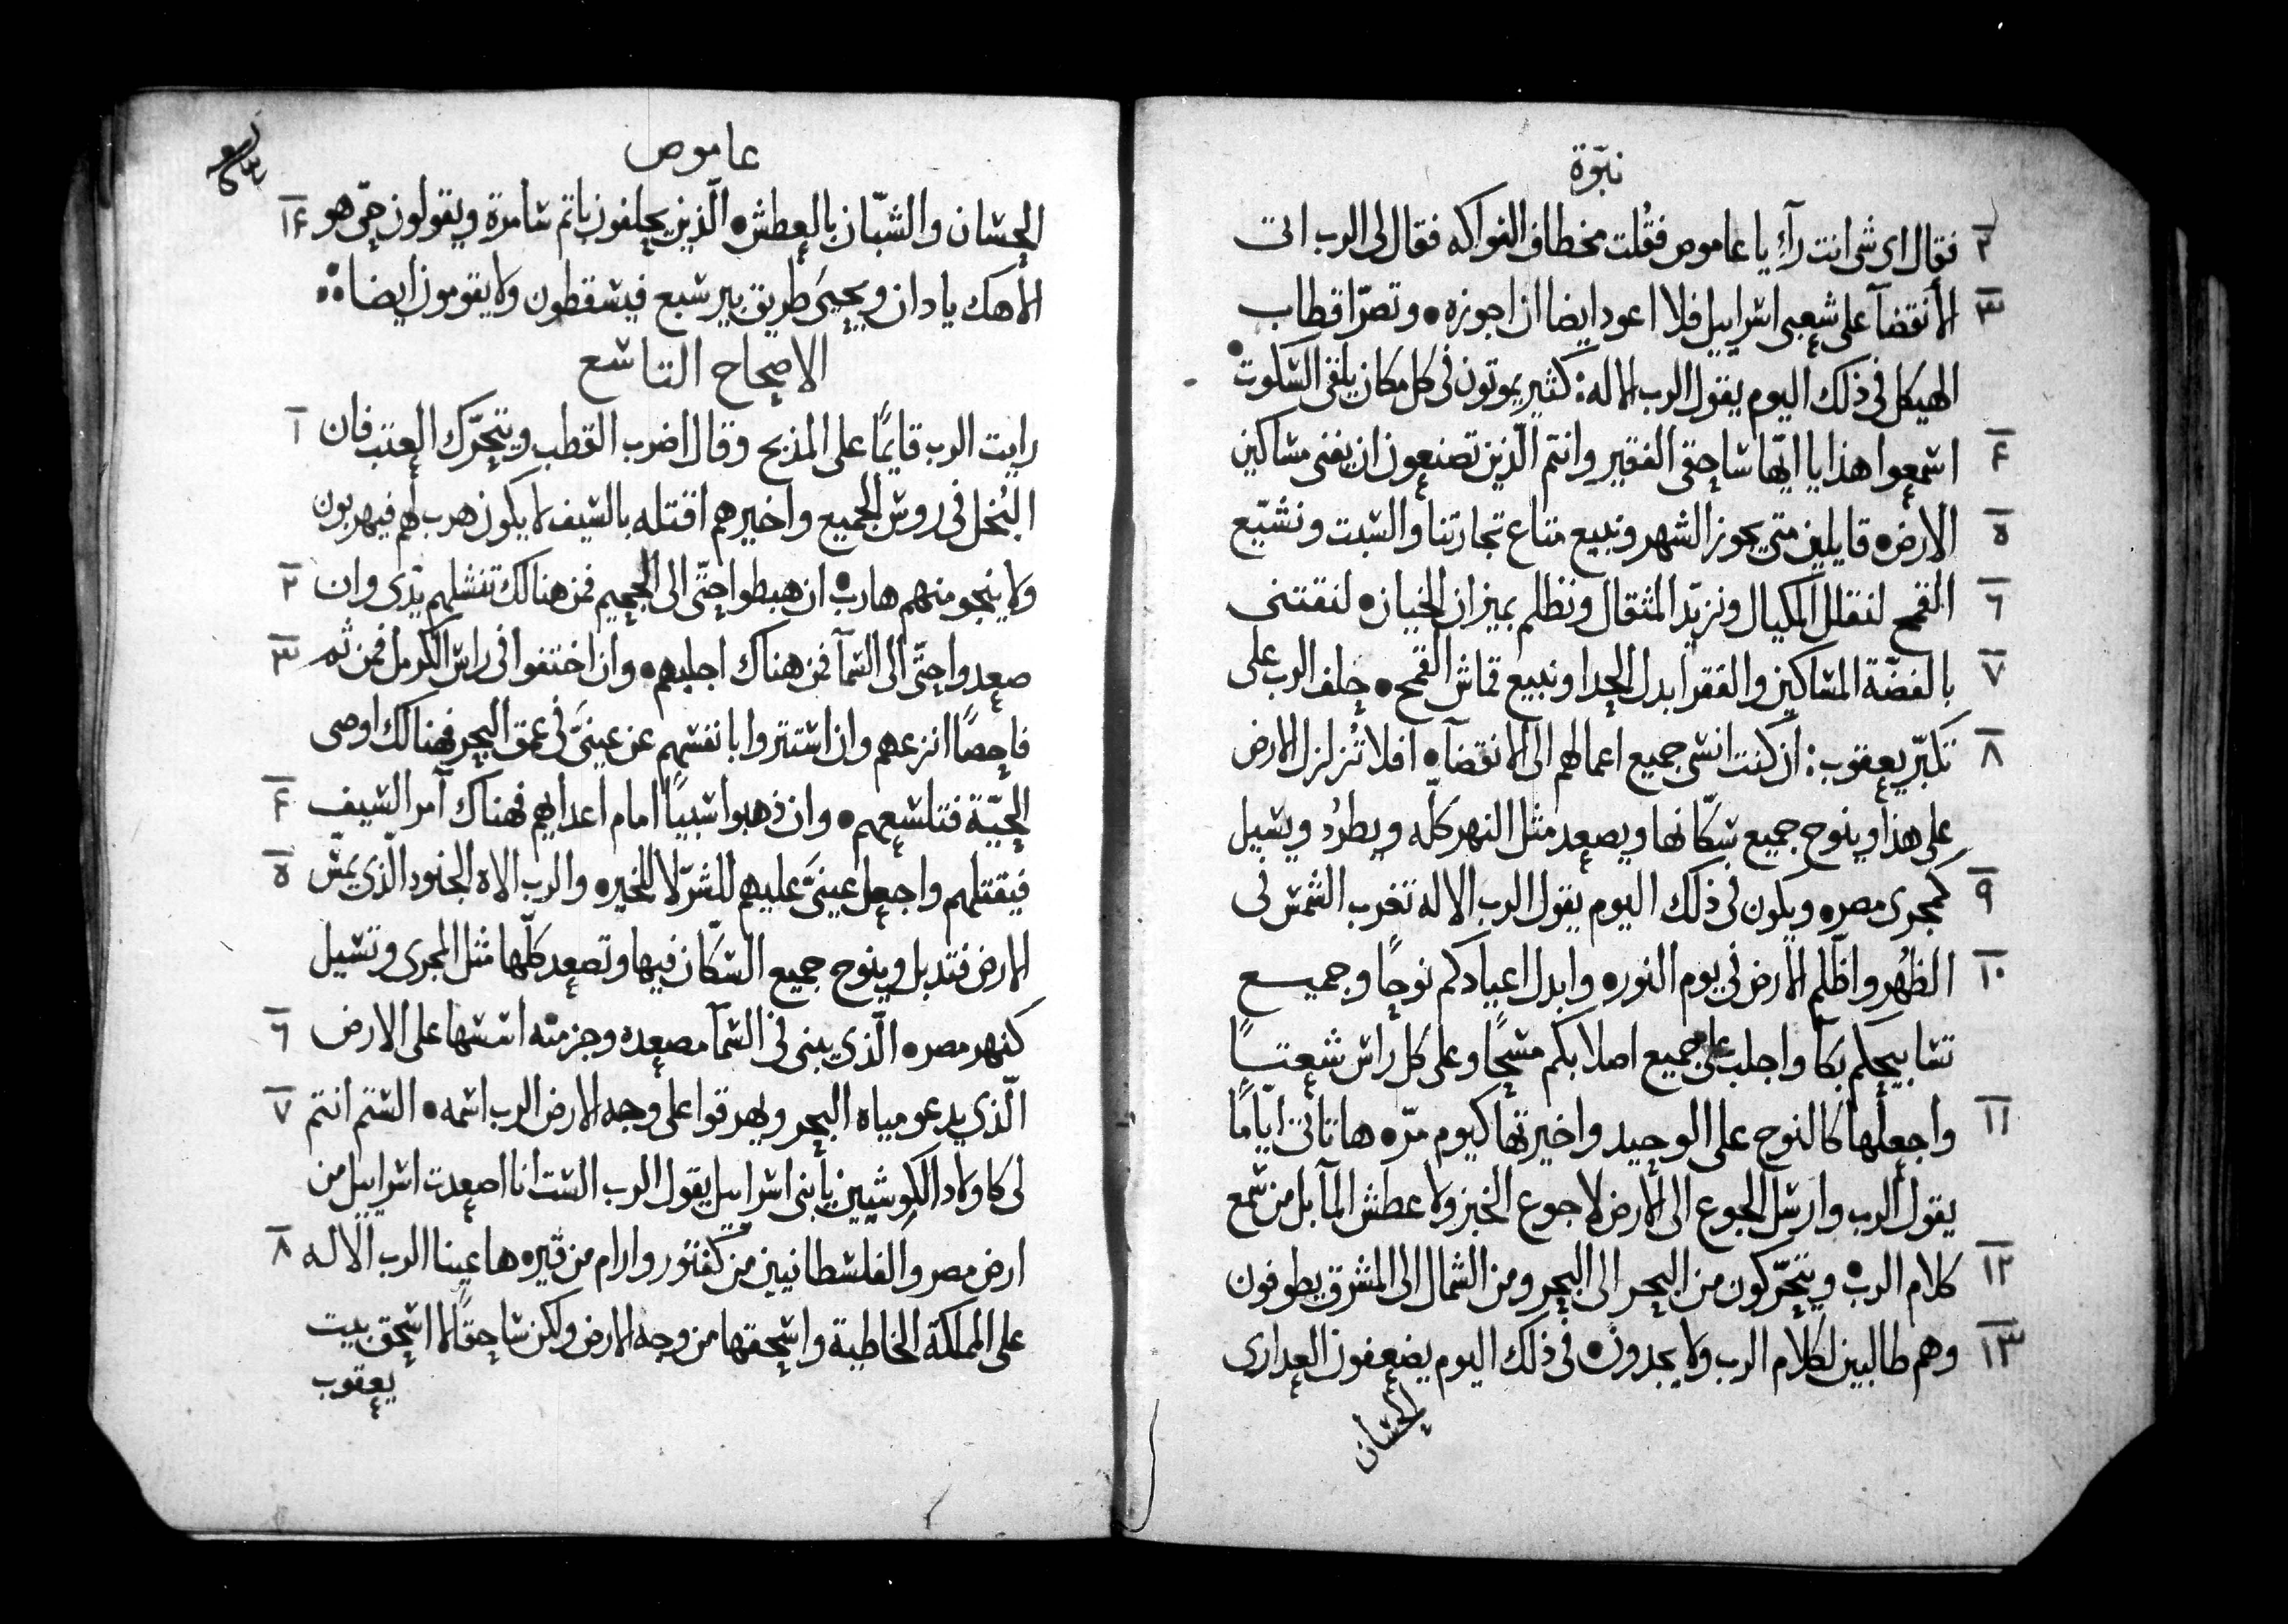 نبوّة
٢ فقال اى شى انت رآءٍ يا عاموص فقُلت مخطاف الفواكه فقال لى الرب اتت
٣ الأنقضآ على شعبى اسراييل فلا اعود ايضا ان اجوزه • وتصرّ اقطاب
الهيكل فى ذلك اليوم يقول الرب الاله : كثير يموتون فى كل مكان يلقى السكوت •
۴ اسمعوا هذا يا ايّها ساحقى الفقير وانتم الّذين تصنعون ان يفنى مساكين
٥ الارض • قايلين متى يجوز الشهر ونبيع متاع تجارتنا والسبت ونشيّع
٦ القمح لنقلل المكيال ونزيّد المثقال ونظلم بميزان الخيانه • لنقتنى
٧ بالفضّة المساكين والفقرا بدل الحدا ونبيع قماش القمح • حلف الرب على
٨ تكبّر يعقوب : ان كنت انسى جميع اعمالهم الى الانقضآ • افلا تُزلزل الارض
على هذا وينوح جميع سكّانها ويصعد مثل النهر كلّه ويطرُد ويسيل
٩ كمجرى مصر • ويكون فى ذلك اليوم يقول الرب الاله تغرب الشمس فى
١٠ الظُهر واظّلم الارض فى يوم النور • وابدل اعيادكم نوحًا وجميع
تسابيحكم بكآ واجلب على جميع اصلابكم مسحًا وعلى كل راس شعتـًا
١١ واجعلها كالنوح على الوحيد واخيرتها كيوم مرّ • ها تاتى ايّامًا
يقول الرب وارسل الجوع الى الارض لا جوع الخبز ولا عطش المآ بل من سمع
١٢ كلام الرب • ويتحرّكون من البحر الى البحر ومن الشمال الى المشرق يطوفون
١٣ وهم طالبين لكلام الرب ولا يجدون • فى ذلك اليوم يضعفون العدارى
الحسان
عاموص
الحسان والشبّان بالعطش • الّذين يحلفون باتم سامرة ويقولون حىّ هو ١۴
الاهك يا دان ويحيىَ طريق بير سبع فيسقطون ولا يقومون ايضا ∴
الاصحاح التاسع
رايت الرب قايمًا على المذبح وقال اضرب القطب ويتحرَّك العتب فان ١
البُخل فى روس الجميع واخيرهم اقتله بالسيف لا يكون هرب لهم فيهربون
ولا ينجو منهم هارب • ان هبطوا حتّى الى الجحيم فمن هنالك تنشلهم يدّى وان ٢
صعدوا حتّى الى السمآ فمن هناك اجلبهم • وان اختفوا فى راس الكرمل فمن ثم ٣
فاحصًا انزعهم وان استتروا بانفسهم عن عينىَّ فى عمق البحر فهنالك اوصى
الحيّة فتلسعهم • وان ذهبوا سبيًا امام اعدايهم فهناك آمر السيف ۴
فيقتلهم واجعل عينىَّ عليهم للشرّ لا للخير • والرب الاه الجنود الّذى يمسّ ٥
الارض فتدبل وينوح جميع السكّان فيها وتصعد كلّها مثل المجرى وتسيل
كنهر مصر • الّذى يبنى فى السمآ مصعده وجزمته اسسها على الارض ٦
الّذى يدعو مياه البحر ويهرقوا على وجه الارض الرب اسمه • الستم انتم ٧
لى كاولاد الكوشيين يا بنى اسراييل يقول الرب الست انا اصعدت اسراييل من
ارض مصر والفلسطانيين من كفتور وارام من قير • ها عينا الرب الاله ٨
على المملكة الخاطية واسحقها من وجه الارض ولكن ساحقًا لا اسحق بيت
يعقوب